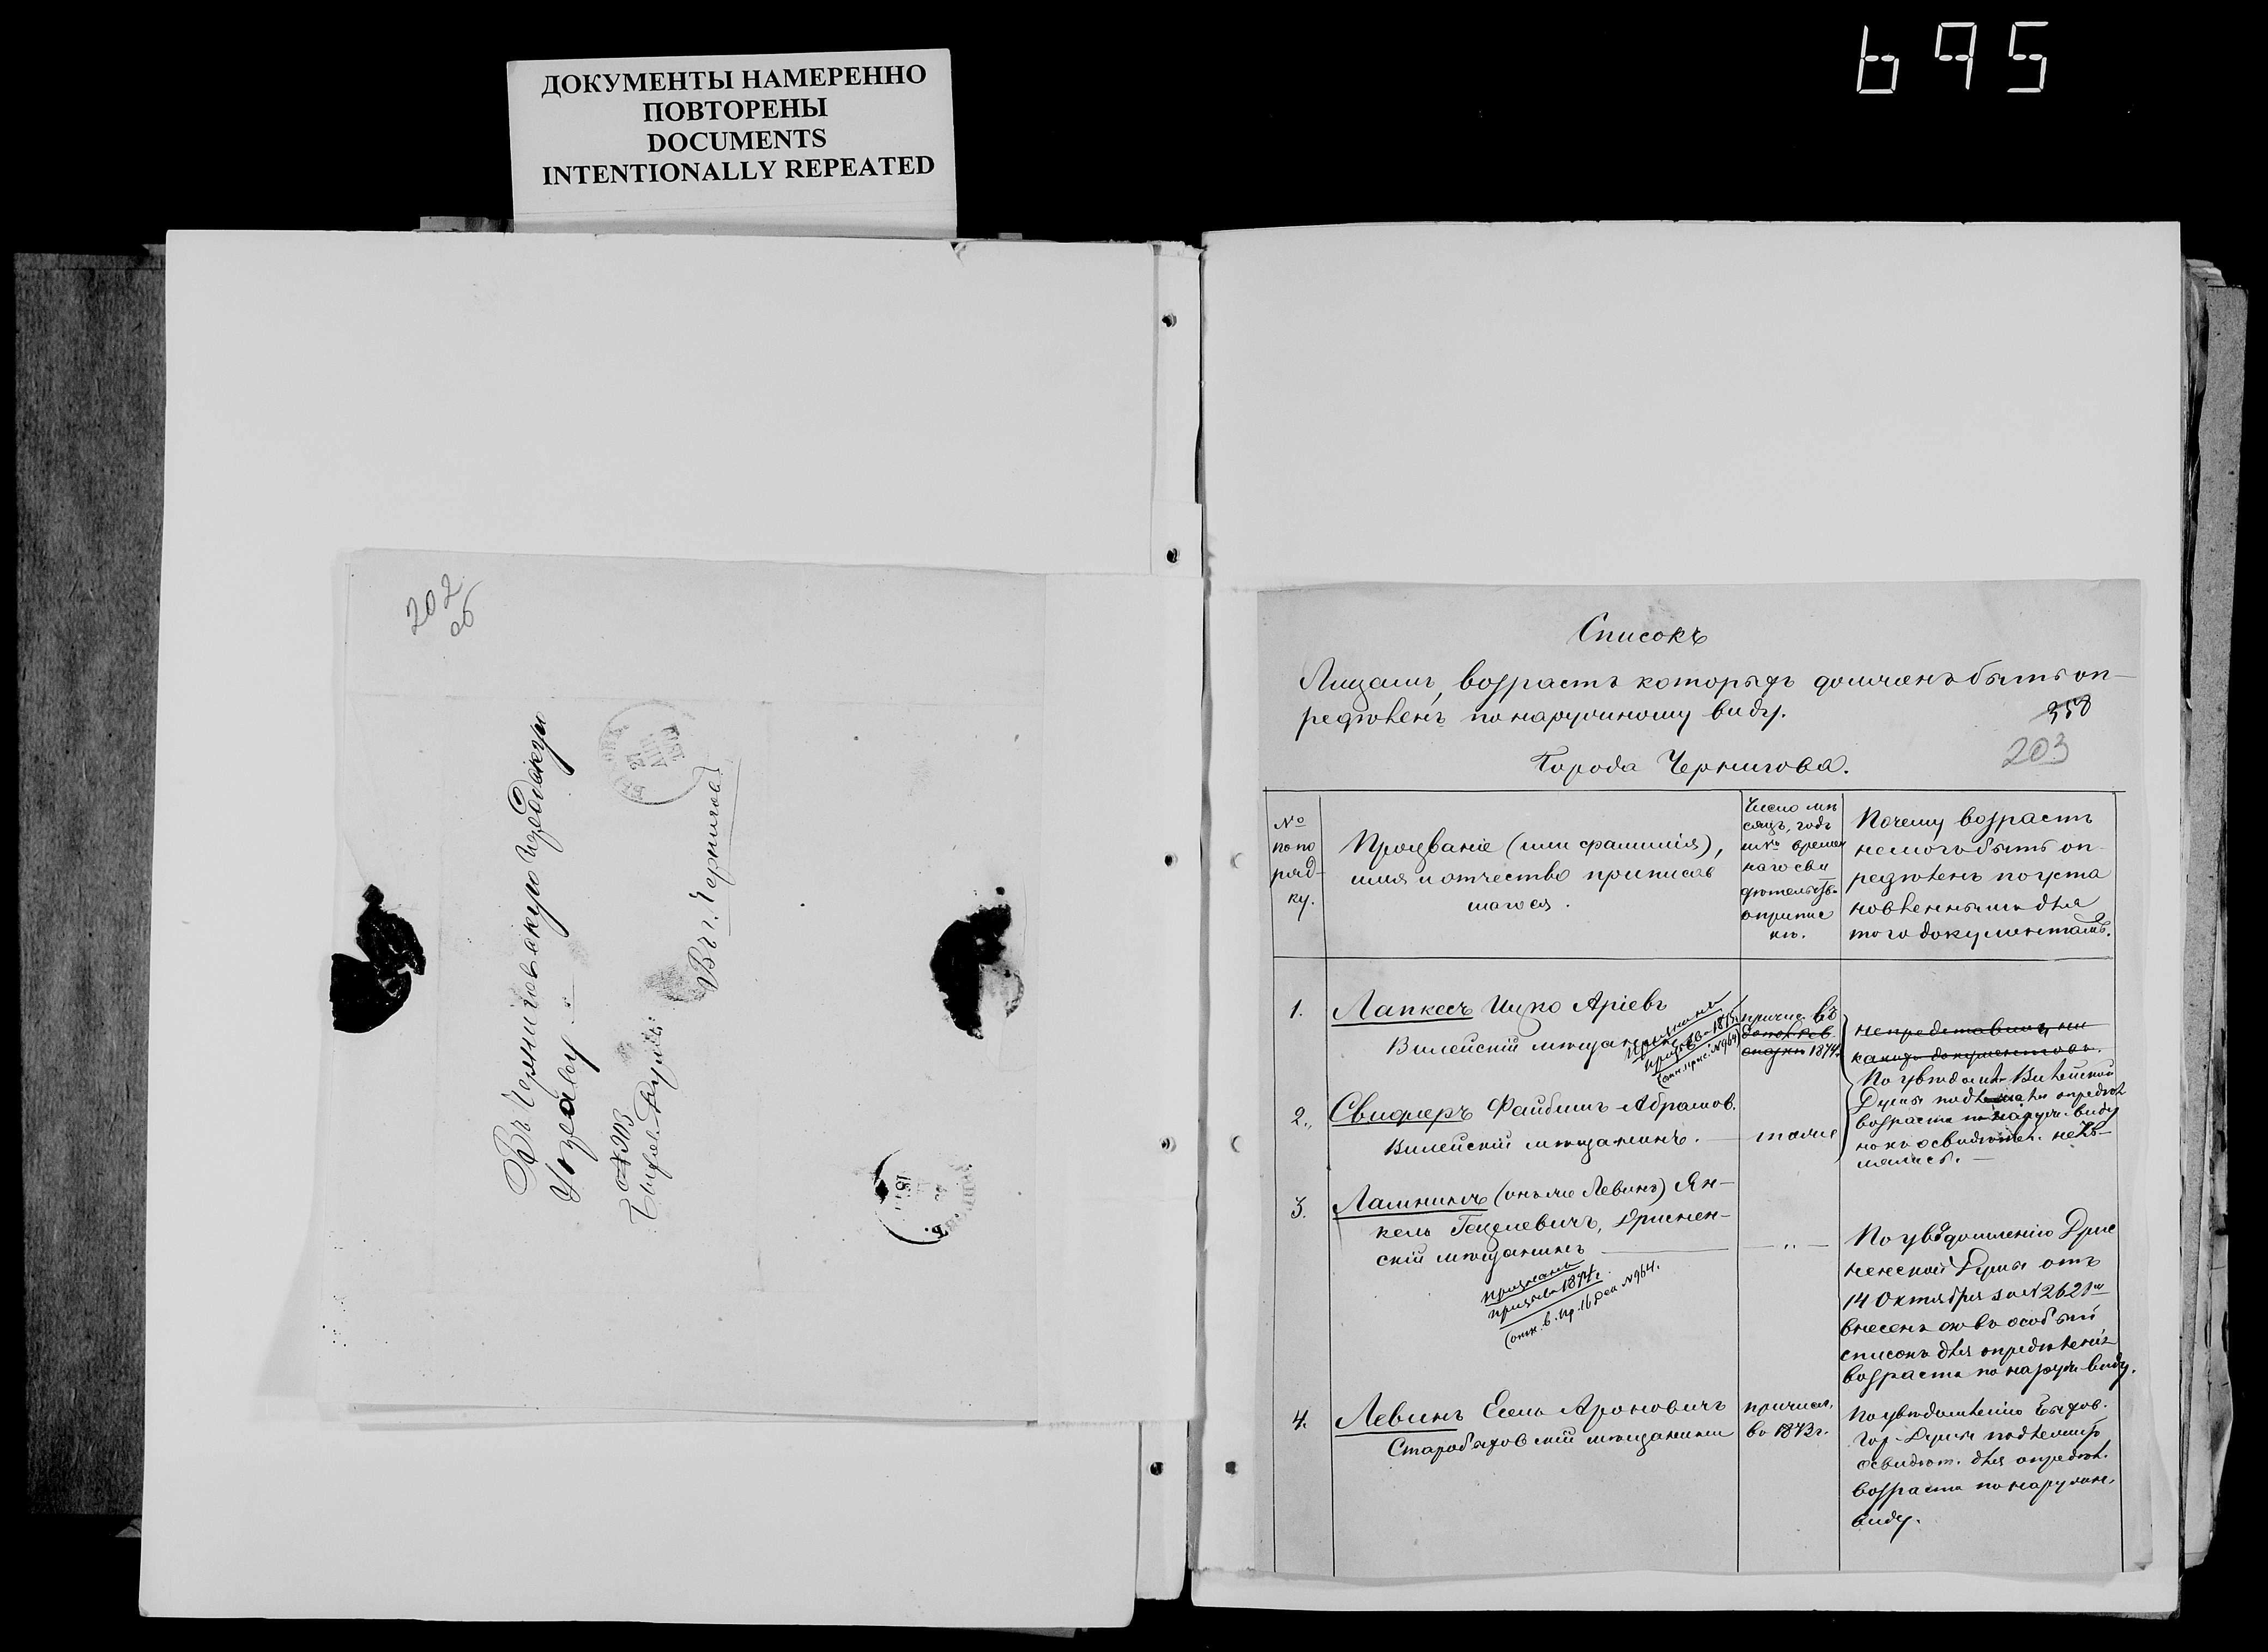 695
ДОКУМЕНТЫ НАМЕРЕННО
ПОВТОРЕНЫ
DOCUMENTS
INTENTIONALLY REPEATED
202
об
Въ Черниговскую Уездную
Управу
Въ г. Черниговъ
Списокъ
Лицамъ, возрастъ которыхъ долженъ быть оп-
редѣленъ по наружному виду.
358
203
Города Чернигова.
№
по по
ряд-
ку.
Прозваніе (или фамилія),
имя и отчество приписав
шагося.
Число мѣ
сяцъ, годъ
и № времен
наго сви
дѣтельства
о припис
кѣ.
Почему возрастъ
не могъ быть оп-
редѣленъ по уста
новленнымъ для
того документамъ.
1.
Лапкесъ Ицко Аріевъ
Вилейскій мѣщанинъ
Признанъ
призыва 1875
причис. въ
1874.
не представилъ ни
какихъ документовъ.
По увѣдомл. Вилейской
Думы подлежатъ опредѣл.
возраста по наруж. виду
но къ освидѣтел. не яв-
лялись.
2.
Свирлеръ Файбишъ Абрамов.
Вилейскій мѣщанинъ.
тоже
3.
Лапнинъ (онъ же Левинъ) Ян-
кель Гецелевичъ, Дриссен-
скій мѣщанинъ
признанъ
призыва 1874 г.
(отн. в. пр. 16 Дек №964.
"
По увѣдомленію Дрис
сенской Думы отъ
14 Октября за №2621м
внесенъ онъ въ особый
списокъ для опредѣленія
возраста по наруж. виду.
4.
Левинъ Есель Ароновичъ
Старобыховскій мѣщанинъ
причисл.
въ 1873 г.
По увѣдомленію Быхов.
Гор. Думы подлежитъ
освидѣт. для опредѣл.
возраста по наружн.
виду.